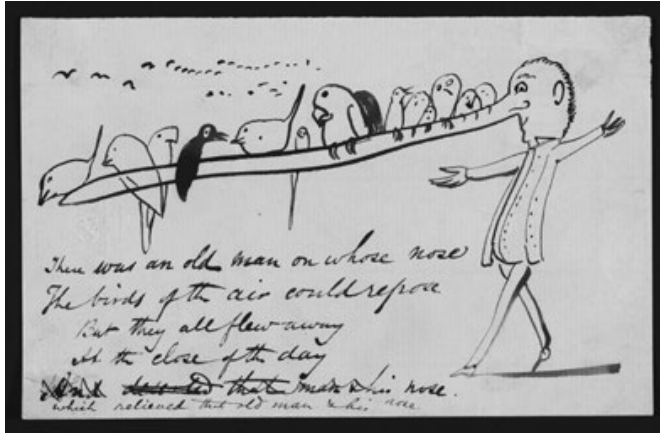 There was an old man on whose nose
The birds of the air could repose
But they all flew away
At the close of the day
And deserted that man & his nose.
which relieved that old man & his nose.